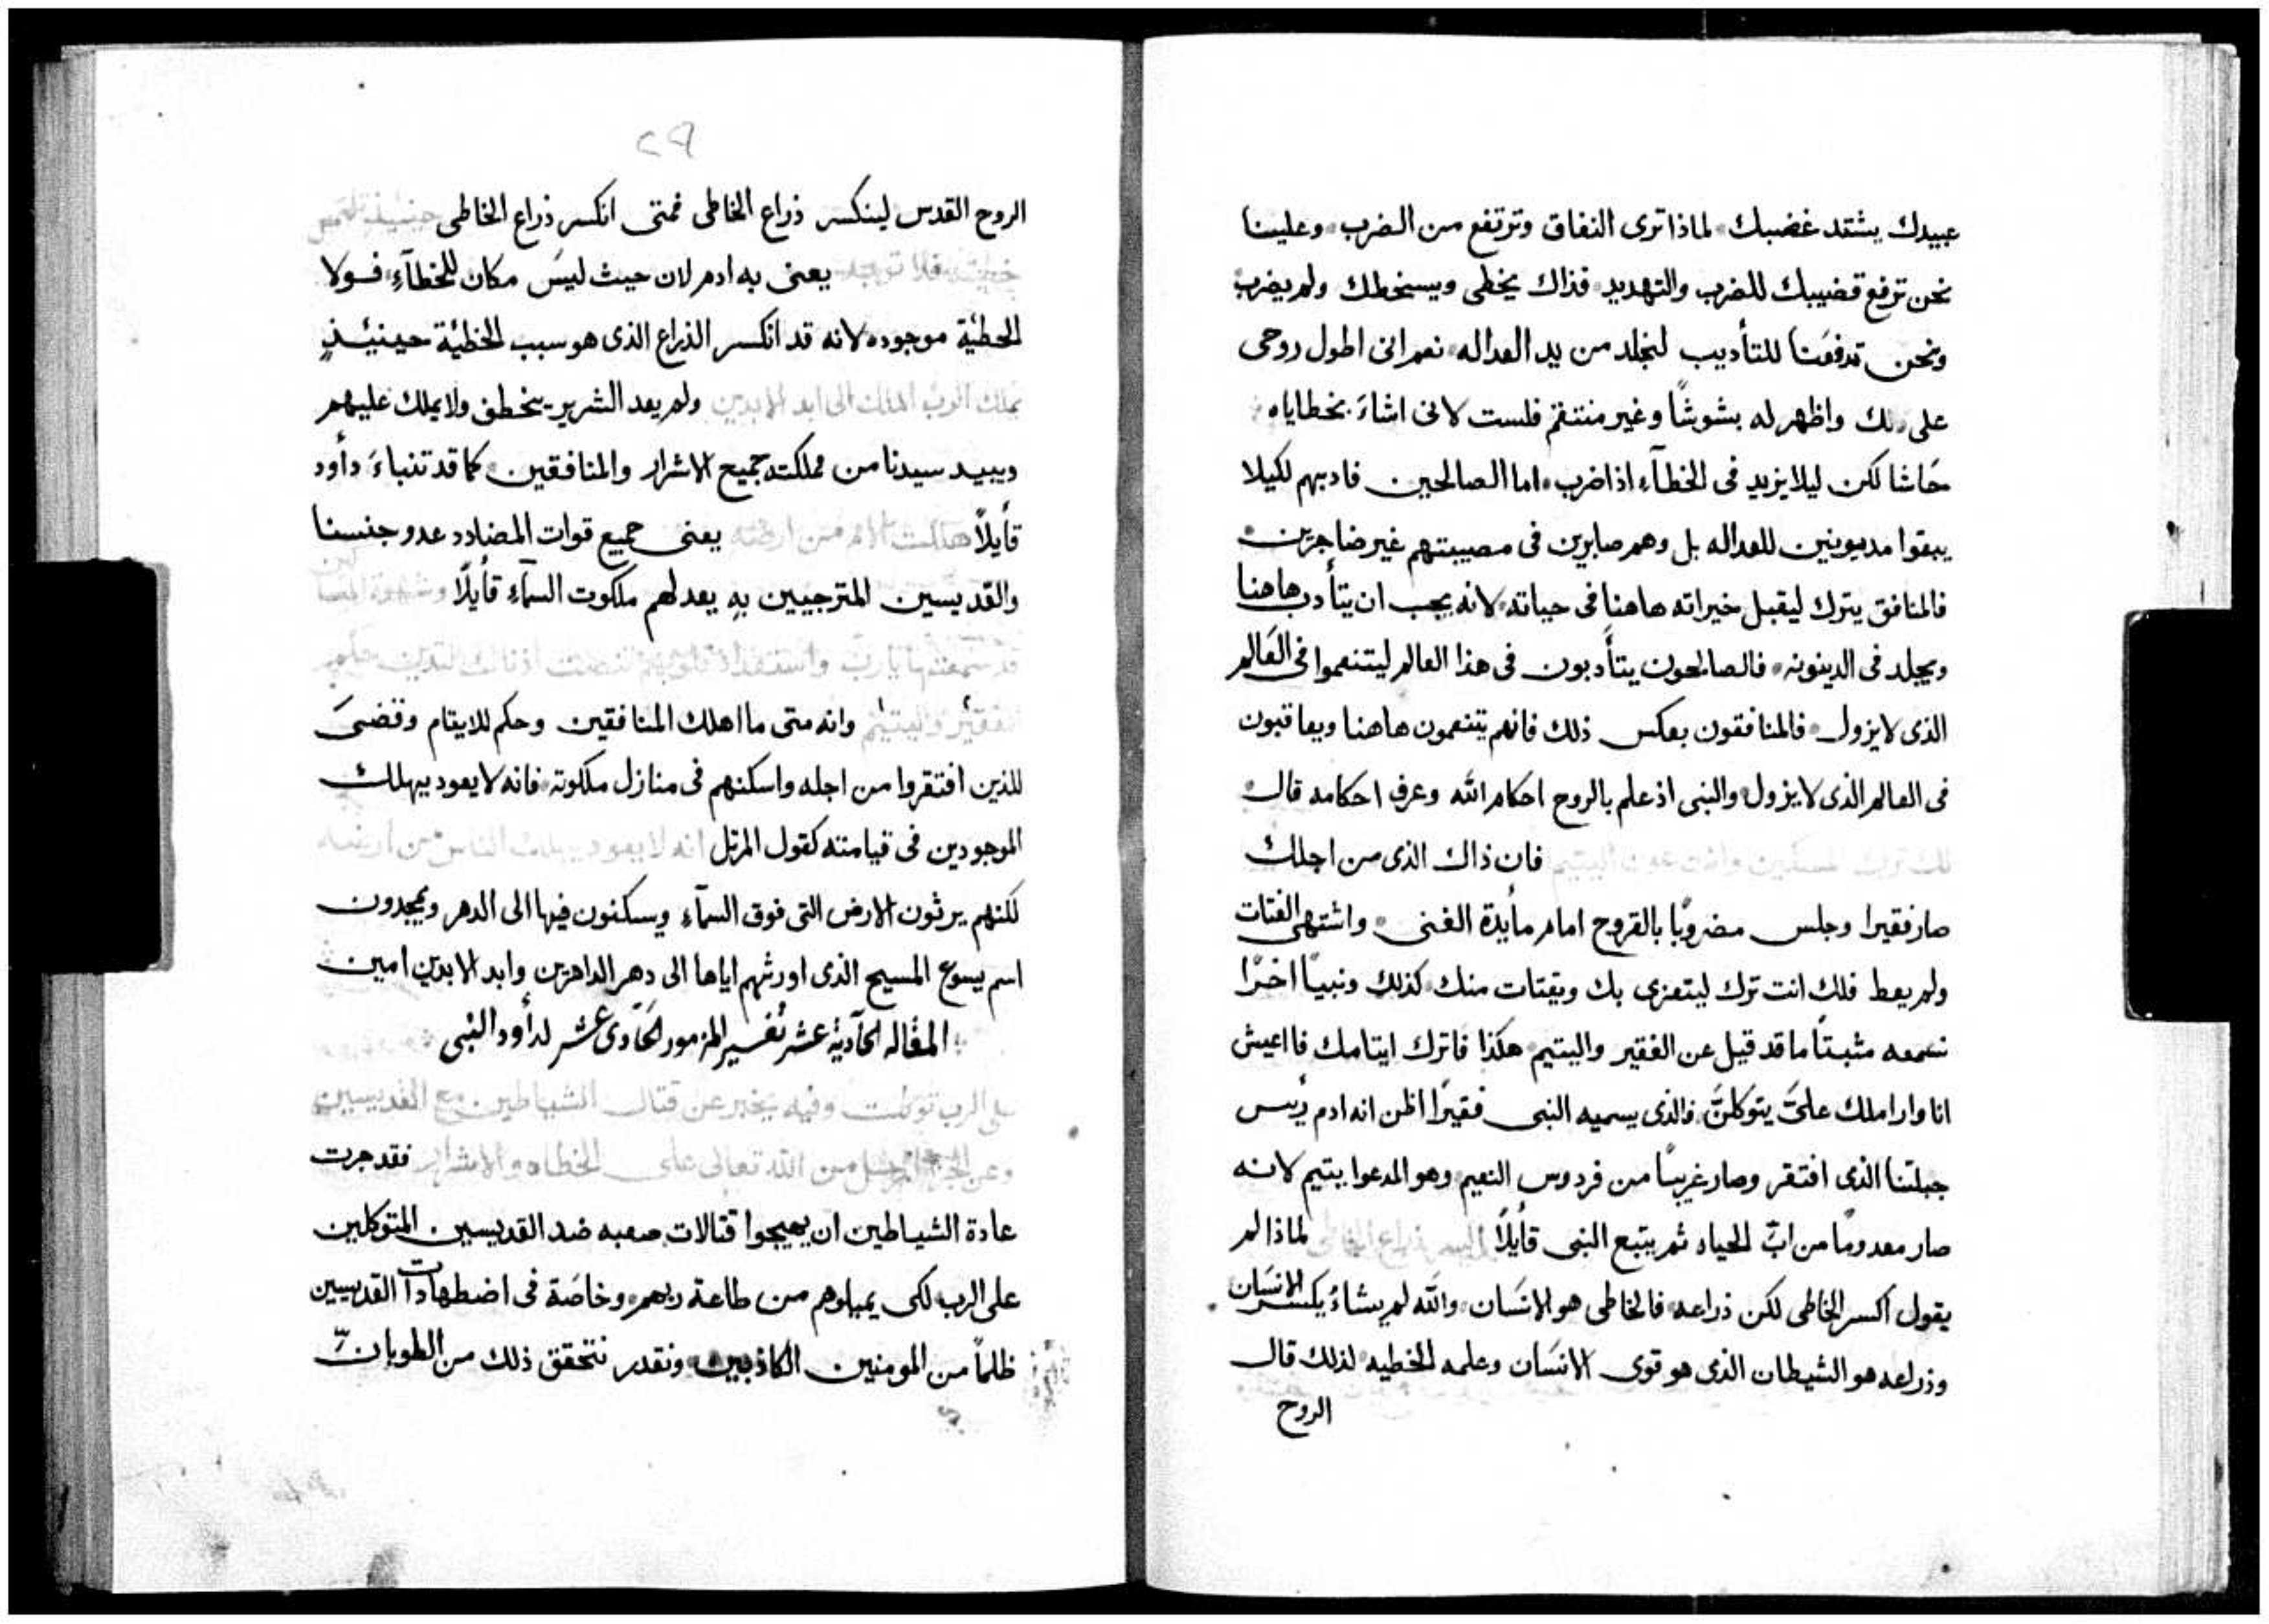 عبيدك يشتد غضبك لماذا ترى النفاق وترتفع من الضرب وعلينا
نحن ترفع قضيبك للضرب والتهديد فذاك يخطى ويسخطك ولم يضرب
ونحن تدفعنا للتأديب لنجلد من يد العداله نعم انى اطول روحى
على واظهر له بشوشًا وغير منتقم فلست لانى اشاءَ بخطاياه
حَاشا لكن ليلا يزيد فى الخطآء اذا ضرب اما الصالحين فادبهم لكيلا
يبقوا مديونين للعداله بل وهم صابرين فى مصيبتهم غير ضاجرين
فالمنافق يترك ليقبل خيراته هاهنا فى حياته لانه يجب ان يتأدب هاهنا
ويجلد فى الدينونه فالصالحون يتأدبون فى هذا العالم ليتنعموا فى العَالم
الذى لا يزول فالمنافقون بعكس ذلك فانهم يتنعمون هاهنا ويعاقبون
فى العالم الذى لا يزول والنبى اذ علم بالروح احكام الله وعرف احكامه قال
لك ترك المسكين وانت عون اليتيم فان ذاك الذى من اجلك
صار فقيرا وجلس مضروبًا بالقروح امام مأيدة الغنى واشتهى الفتات
ولم يعط فلك انت ترك ليتعزى بك ويقتات منك كذلك ونبيًا اخرًا
نسمعه مثبتًا ما قد قيل عن الفقير واليتيم هكذا فاترك ايتامك فااعيش
انا واراملك علىَّ يتوكلنَّ فالذى يسميه النبى فقيرًا اظن انه ادم رئيس
جبلتنا الذى افتقر وصار غريبًا من فردوس النعيم وهو المدعوا يتيم لانه
صار معدومًا من ابّ الحياه ثم يتبع النبى قأيلًا اكسر ذراع الخاطى لماذا لم
يقول اكسر الخاطى لكن ذراعه فالخاطى هو الانسَان والله لم يشاءُ يكسر الانسَان
وذراعه هو الشيطان الذى هو قوى الانسَان وعلمه الخطيه لذلك قال
الروح
الروح القدس لينكسر ذراع الخاطى فمتى انكسر ذراع الخاطى حينيذ تلتمس
خطيته فلا توجد يعنى به ادم لان حيث ليسَ مكان للخطآء فولا
الخطئية موجوده لانه قد انكسر الذراع الذى هو سبب الخطئية حينئيذٍ
يملك الرب الملك الى ابد الابدين ولم يعد الشرير يخطف ولا يملك عليهم
ويبيد سيدنا من مملكته جميع الاشرار والمنافقين كما قد تنباءَ دأود
قأيلًا هلكت الامم من ارضه يعنى جميع قوات المضادد عدو جنسنا
والقديسين المترجيين بهِ يعد لهم ملكوت السمآء قأيلًا وشهوة المساكين
قد سمعتها يارب واستعداد قلوبهم انصتت اذناك لتدين حكم
الفقير واليتيم وانه متى ما اهلك المنافقين وحكم للايتام وقضىَ
للذين افتقروا من اجله واسكنهم فى منازل ملكوته فانه لا يعود يهلك
الموجودين فى قيامته كقول المرتل انه لا يعود يهلك الناس من ارضه
لكنهم يرثون الارض التى فوق السمآء ويسكنون فيها الى الدهر ويمجدون
اسم يسوع المسيح الذى اورثهم اياها الى دهر الداهرين وابد الابدين امين
المقاله الحآدية عشر تفسير المزمور الحَادى عشر لدأود النبى
على الرب توكلت وفيه يخبر عن قتال الشياطين مع القديسين
وعن من الله تعالى على الخطاه والاشرار فقد جرت
عادة الشياطين ان يهيجوا قتالات صعبه ضد القديسين المتوكلين
على الرب لكى يميلوهم من طاعة ربهم وخاصَة فى اضطهادات القديسين
ظلمًا من المومنين الكاذبين ونقدر نتحقق ذلك من الطوبان